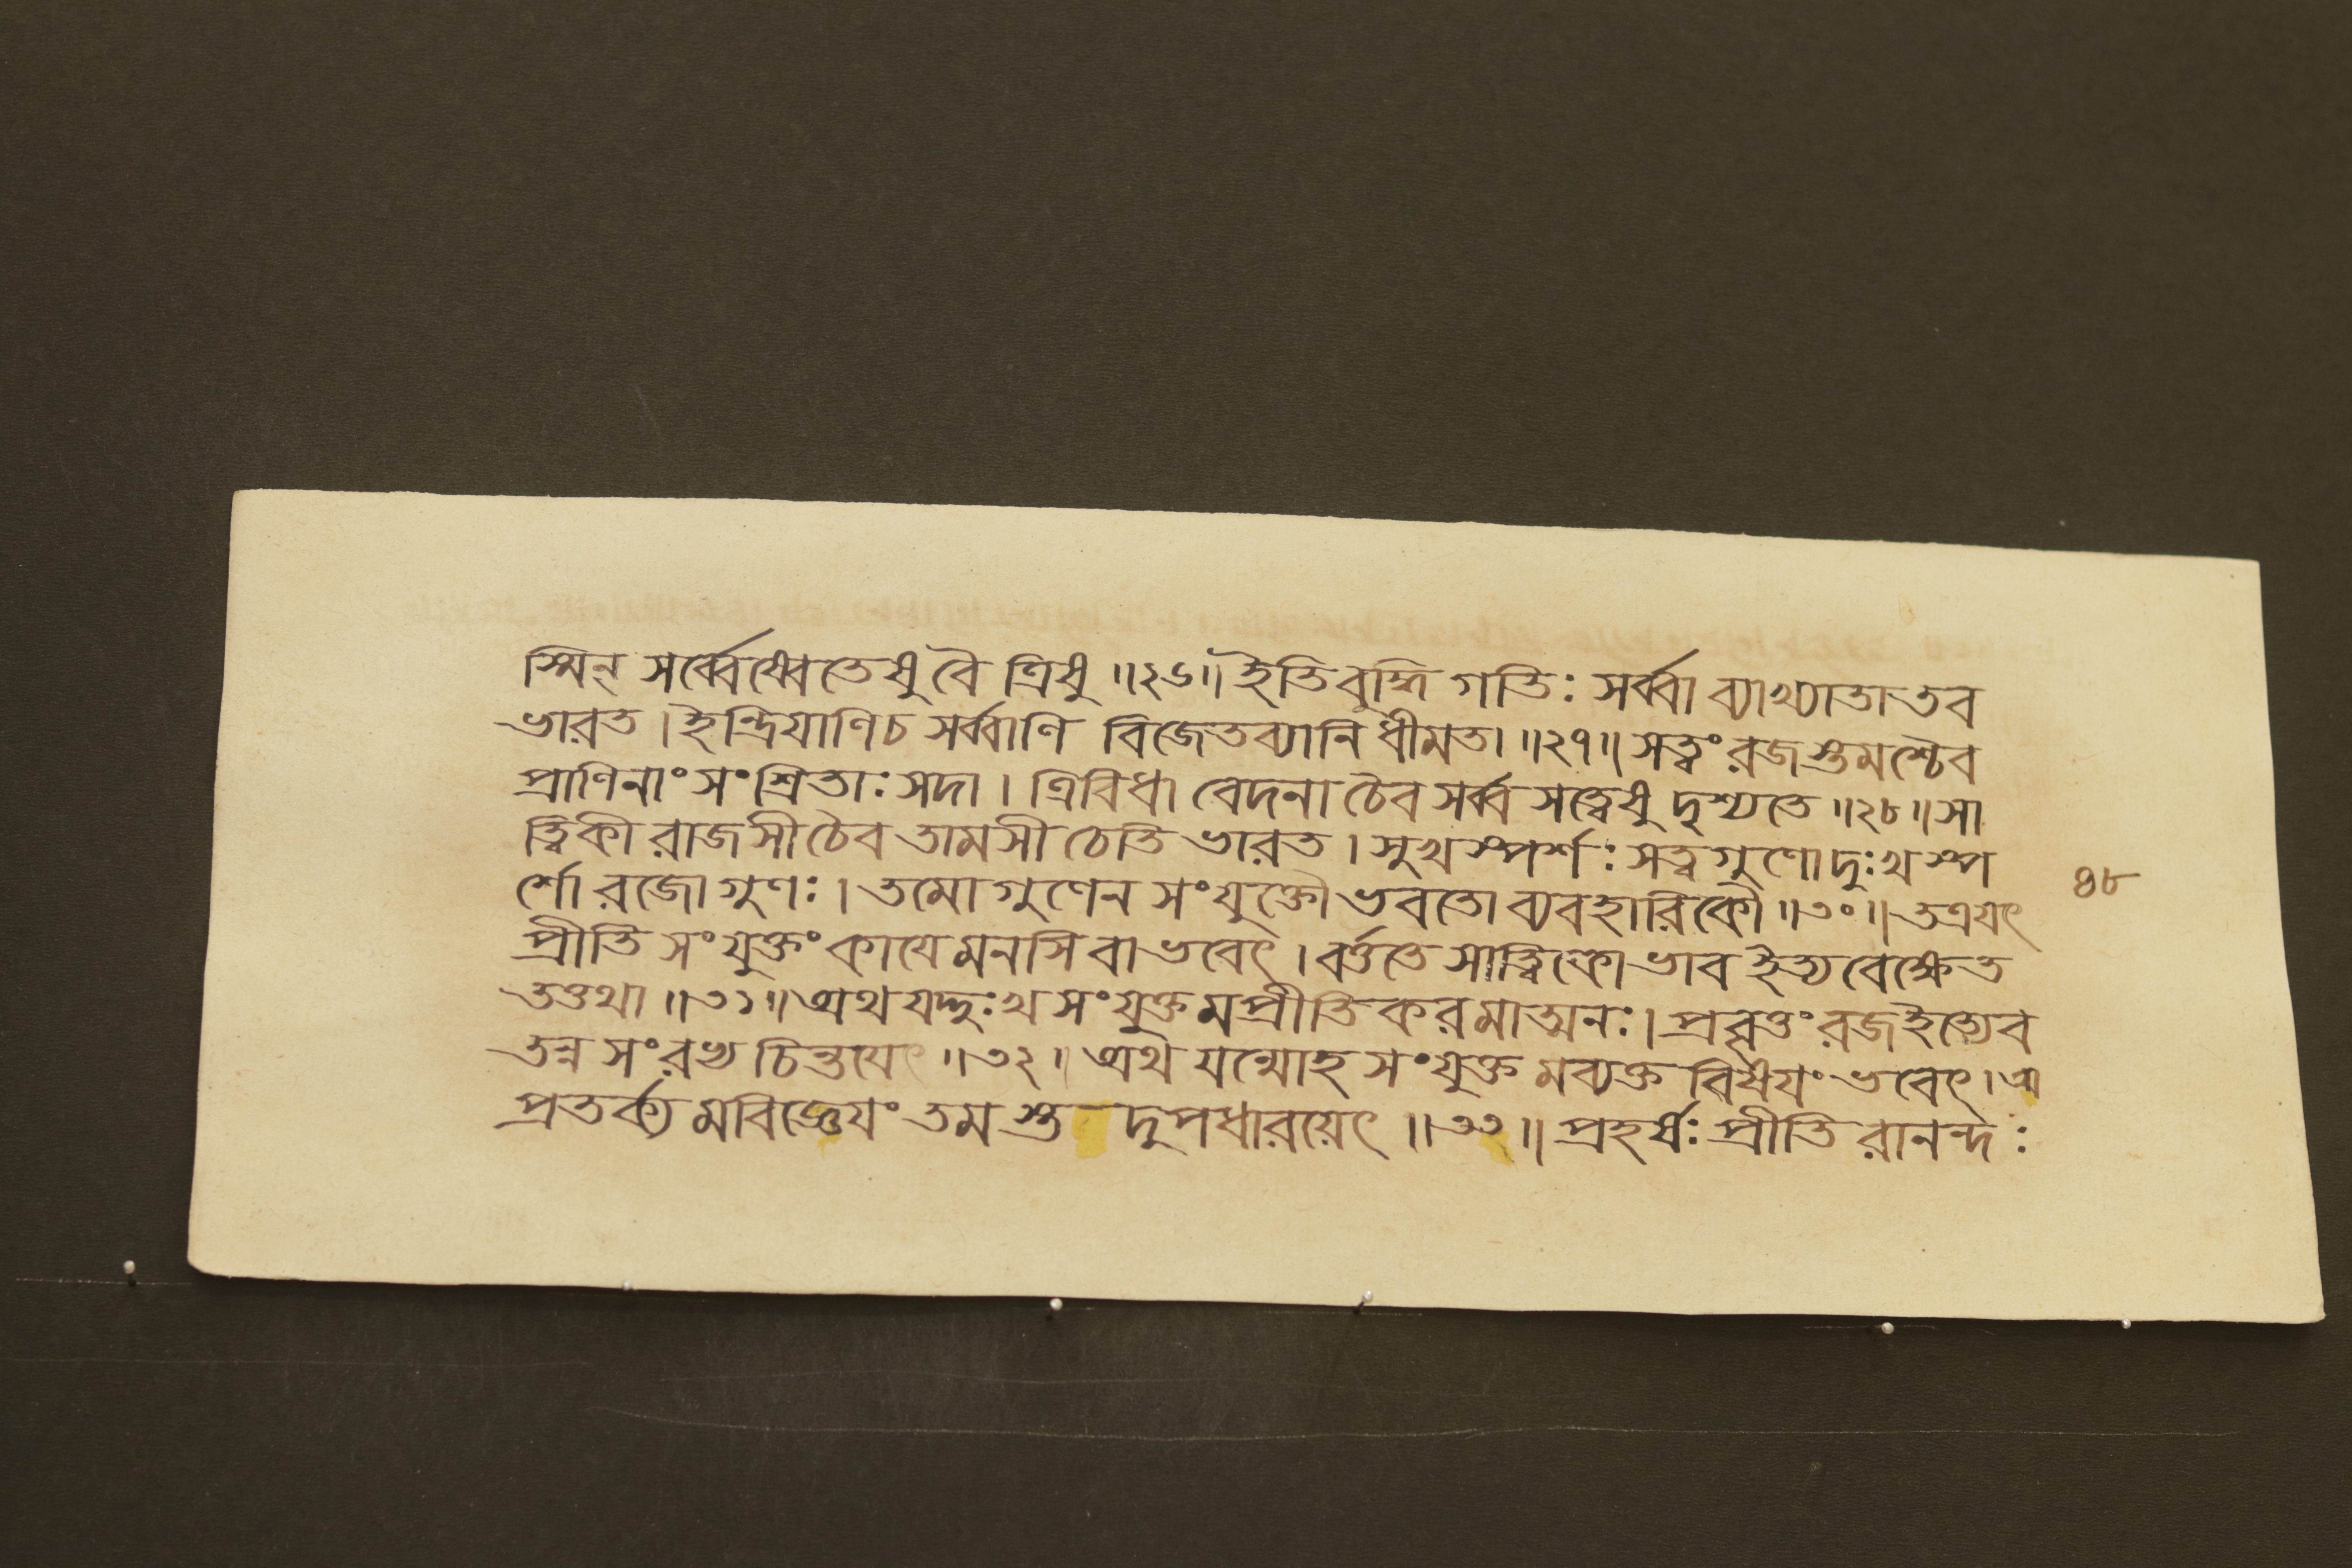 স্মিন্ সর্ব্বেষ্বেতেষু বৈ ত্রিষু ॥২৬॥ ইতি বুদ্ধি গতিঃ সর্ব্বা ব্যাখ্যাতা তব
ভারত । ইন্দ্রিযাণি চ সর্ব্বাণি বিজেতব্যানি ধীমতা ॥২৭॥ সত্ত্বং রজস্তমশ্চৈব
প্রাণিনাং সংশ্রিতাঃ সদা । ত্রিবিধা বেদনা চৈব সর্ব্ব সত্ত্বেষু দৃশ্যতে ॥২৮॥ সা
ত্ত্বিকী রাজসী চৈব তামসী চেতি ভারত । সুখ স্পর্শঃ সত্ত্ব গুণো দুঃখ স্প
র্শো রজো গুণঃ । তমো গুণেন সংযুক্তৌ ভবতো ব্যবহারিকৌ ॥৩০॥ তত্র যৎ
প্রীতি সংযুক্তং কাযে মনসি বা ভবেৎ । বর্ত্ততে সাত্ত্বিকো ভাব ইত্যবেক্ষেত
তত্তথা ॥৩১॥ অথ যদ্দুঃখ সংযুক্তমপ্রীতিকরমাত্মনঃ । প্রবৃত্তং রজ ইত্যেব
তন্ন সংরভ্য চিন্তযেৎ ॥৩২॥ অথ যন্মোহ সংযুক্তমব্যক্ত বিষযং ভবেৎ । অ
প্রতর্ক্যমবিজ্ঞেযং তমস্তদুপধারয়েৎ ॥৩৩॥ প্রহর্ষঃ প্রীতিরানন্দঃ
৪৮